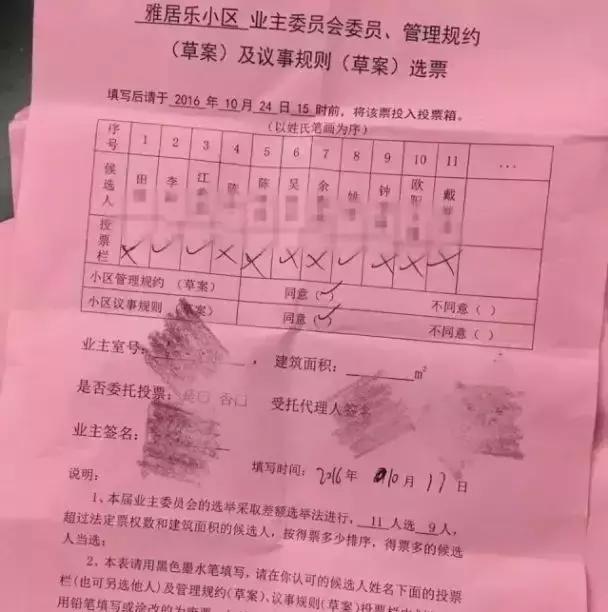 雅居乐小区 业主委员会委员、管理规约
（草案）及议事规则（草案）选票
填写后请于 2016 年 10 月 24 日 15 时前，将该票投入投票箱。
（以姓氏笔画为序）
序号 1 2 3 4 5 6 7 8 9 10 11 …
候选人 田 李 江 陈 陈 吴 余 姚 钟 欧阳 戴
投票栏 × ✓ ✓ × × × × ✓ × × ×
小区管理规约（草案） 同意（✓） 不同意（ ）
小区议事规则（草案） 同意（✓） 不同意（ ）
业主室号： ，建筑面积： m²
是否委托投票：是□ 否□ 受托代理人签名
业主签名：
填写时间：2016年 10月 17日
说明：
1、本届业主委员会的选举采取差额选举法进行，11 人选 9 人，
超过法定票权数和建筑面积的候选人，按得票多少排序，得票多的候选
人当选；
2、本表请用黑色墨水笔填写，请在你认可的候选人姓名下面的投票
栏（也可另选他人）及管理规约（草案）、议事规则（草案）投票栏
用铅笔填写或涂改的为废票